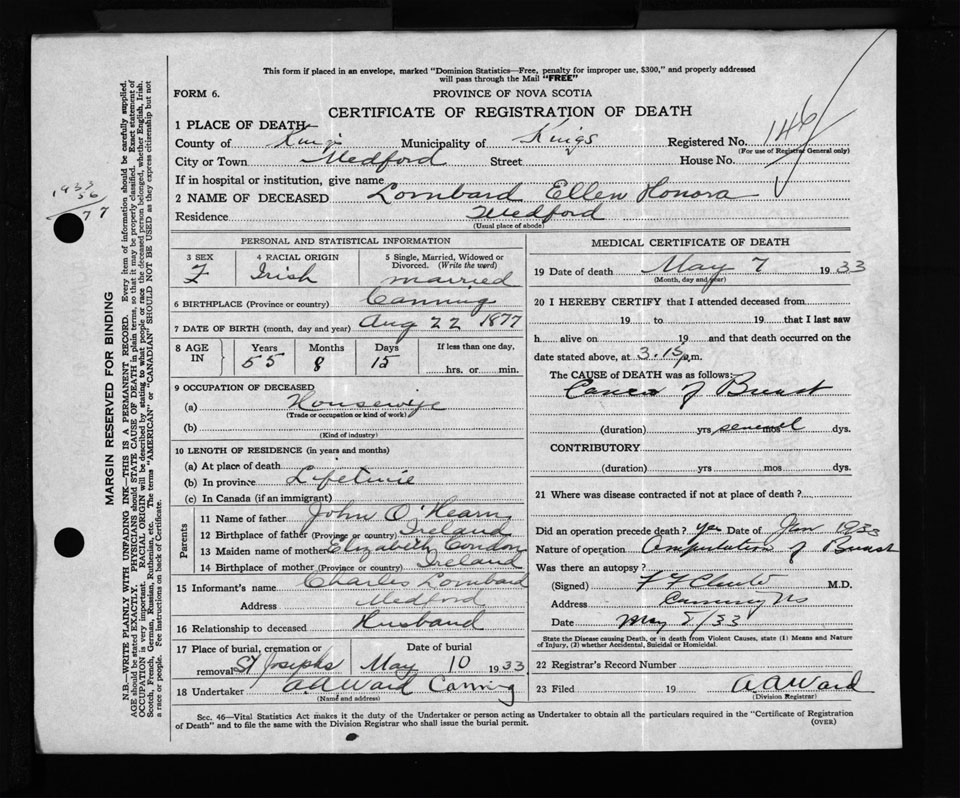 This form if placed in an envelope, marked "Dominion Statistics—Free, penalty for improper use, $300," and properly addressed
will pass through the Mail "FREE"
FORM 6. PROVINCE OF NOVA SCOTIA
CERTIFICATE OF REGISTRATION OF DEATH
1 PLACE OF DEATH
County of Kings Municipality of Kings Registered No. 146
(For use of Registrar General only)
City or Town Medford Street House No.
If in hospital or institution, give name
2 NAME OF DECEASED Lombard Ellen Honora
Residence Medford
(Usual place of abode)
1933
56
77
MARGIN RESERVED FOR BINDING
N.B.—WRITE PLAINLY WITH UNFADING INK—THIS IS A PERMANENT RECORD. Every item of information should be carefully supplied.
AGE should be stated EXACTLY. PHYSICIANS should STATE CAUSE OF DEATH in plain terms, so that it may be properly classified. Exact statement of
OCCUPATION is very important. RACIAL ORIGIN will be described by stating to what people or race the deceased person belonged, whether English, Irish,
Scotch, French, German, Russian, Ruthenian, etc. The terms "AMERICAN" or "CANADIAN" SHOULD NOT BE USED as they express citizenship but not
a race or people. Fee instructions on back of Certificate.
PERSONAL AND STATISTICAL INFORMATION
3 SEX 4 RACIAL ORIGIN 5 Single, Married, Widowed or
Divorced. (Write the word)
F Irish married
6 BIRTHPLACE (Province or country) Canning
7 DATE OF BIRTH (month, day and year) Aug 22 1877
8 AGE IN Years Months Days If less than one day,
55 8 15 hrs. or min.
9 OCCUPATION OF DECEASED
(a) Housewife
(Trade or occupation or kind of work)
(b)
(Kind of industry)
10 LENGTH OF RESIDENCE (in years and months)
(a) At place of death
(b) In province Lifetime
(c) In Canada (if an immigrant)
Parents
11 Name of father John O'Hearn
12 Birthplace of father (Province or country) Ireland
13 Maiden name of mother Elizabeth Condon
14 Birthplace of mother (Province or country) Ireland
15 Informant's name Charles Lombard
Address Medford
16 Relationship to deceased Husband
17 Place of burial, cremation or Date of burial
removal St Josephs May 10 1933
18 Undertaker A A Ward Canning
(Name and address)
MEDICAL CERTIFICATE OF DEATH
19 Date of death May 7 1933
(Month, day and year)
20 I HEREBY CERTIFY that I attended deceased from
19 to 19 that I last saw
h alive on 19 and that death occurred on the
date stated above, at 3.15 p.m.
The CAUSE of DEATH was as follows:
Cancer of Breast
(duration) yrs several mos dys.
CONTRIBUTORY
(duration) yrs mos dys.
21 Where was disease contracted if not at place of death?
Did an operation precede death? yes Date of Jan 1933
Nature of operation Amputation of Breast
Was there an autopsy?
(Signed) M.D.
Address Canning NS
Date May 8/33
State the Disease causing Death, or in death from Violent Causes, state (1) Means and Nature
of Injury, (2) whether Accidental, Suicidal or Homicidal.
22 Registrar's Record Number
23 Filed 19 A A Ward
(Division Registrar)
Sec. 46—Vital Statistics Act makes it the duty of the Undertaker or person acting as Undertaker to obtain all the particulars required in the "Certificate of Registration
of Death" and to file the same with the Division Registrar who shall issue the burial permit. (OVER)